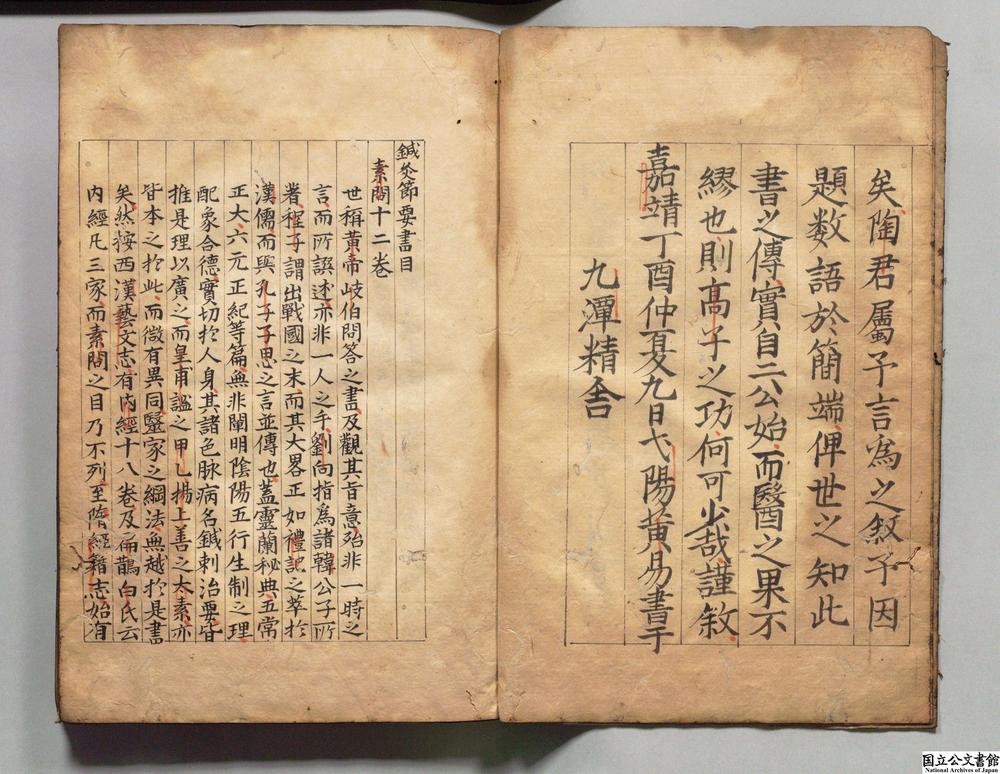 矣陶君屬予言爲之敘予因
題数語於簡端俾世之知此
書之傳實自二公始而醫之果不
繆也則髙子之功何可少哉謹敘
嘉靖丁酉仲夏九日弋陽黄易書于
九潭精舎
鍼灸節要書目
素問十二卷
世稱黄帝岐伯問答之書及觀其旨意殆非一時之
言而所譔述亦非一人之手劉向指爲諸韓公子所
著程子謂出戰國之末而其大畧正如禮記之萃於
漢儒而與孔子子思之言並傳也蓋靈蘭秘典五常
正大六元正紀等篇無非闡明陰陽五行生制之理
配象合德實切於人身其諸色脉病名鍼刺治要皆
推是理以廣之而皇甫謐之甲乙揚上善之太素亦
皆本之於此而微有異同醫家之綱法無越於是書
矣然按西漢藝文志有内經十八卷及扁鵲白氏云
内經凡三家而素問之目乃不列至隋經籍志始有
国立公文書館
National Archives of Japan